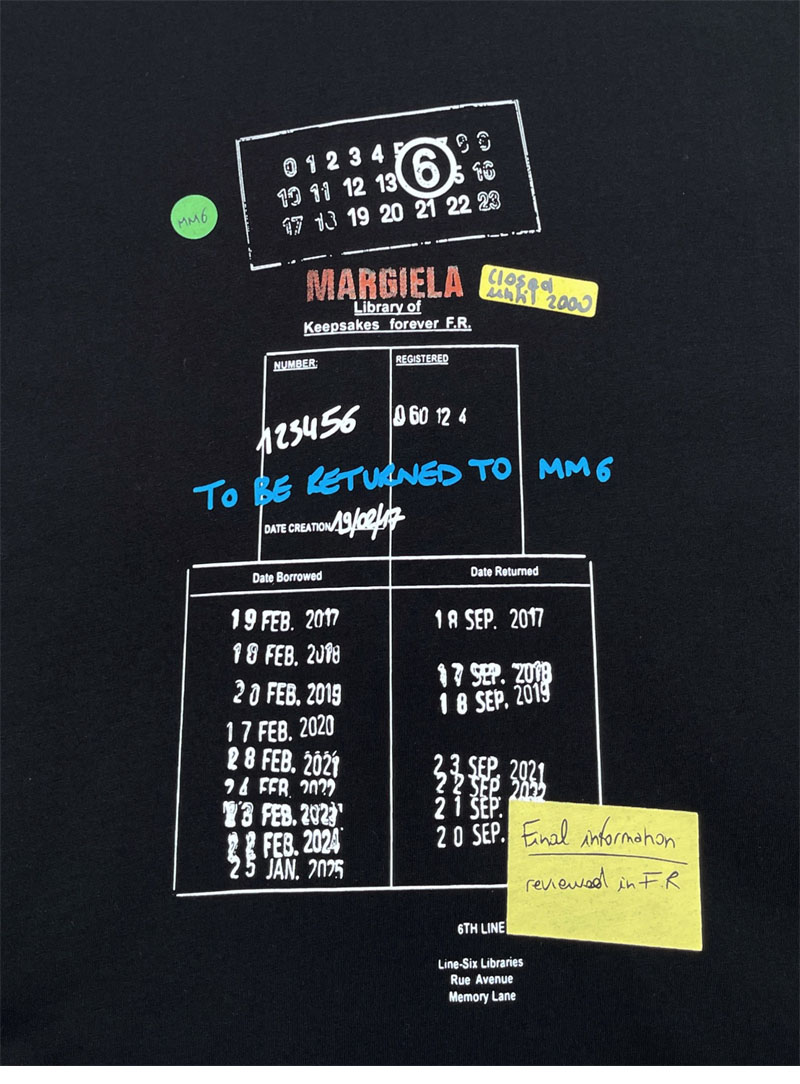 0 1 2 3 4 5 6 7 8 9
10 11 12 13 16
17 18 19 20 21 22 23
MM6
MARGIELA
closed
until 2000
Library of
Keepsakes forever F.R.
NUMBER:
REGISTERED
123456
060 12 4
TO BE RETURNED TO MM6
DATE CREATION 19/02/17
Date Borrowed Date Returned
19 FEB. 2017 18 SEP. 2017
18 FEB. 2018 17 SEP. 2018
20 FEB. 2019 18 SEP. 2019
17 FEB. 2020
28 FEB. 2021 23 SEP. 2021
24 FEB. 2022 22 SEP. 2022
23 FEB. 2023 21 SEP.
22 FEB. 2024 20 SEP.
25 JAN. 2025
Final information
reviewed in F.R
6TH LINE
Line-Six Libraries
Rue Avenue
Memory Lane